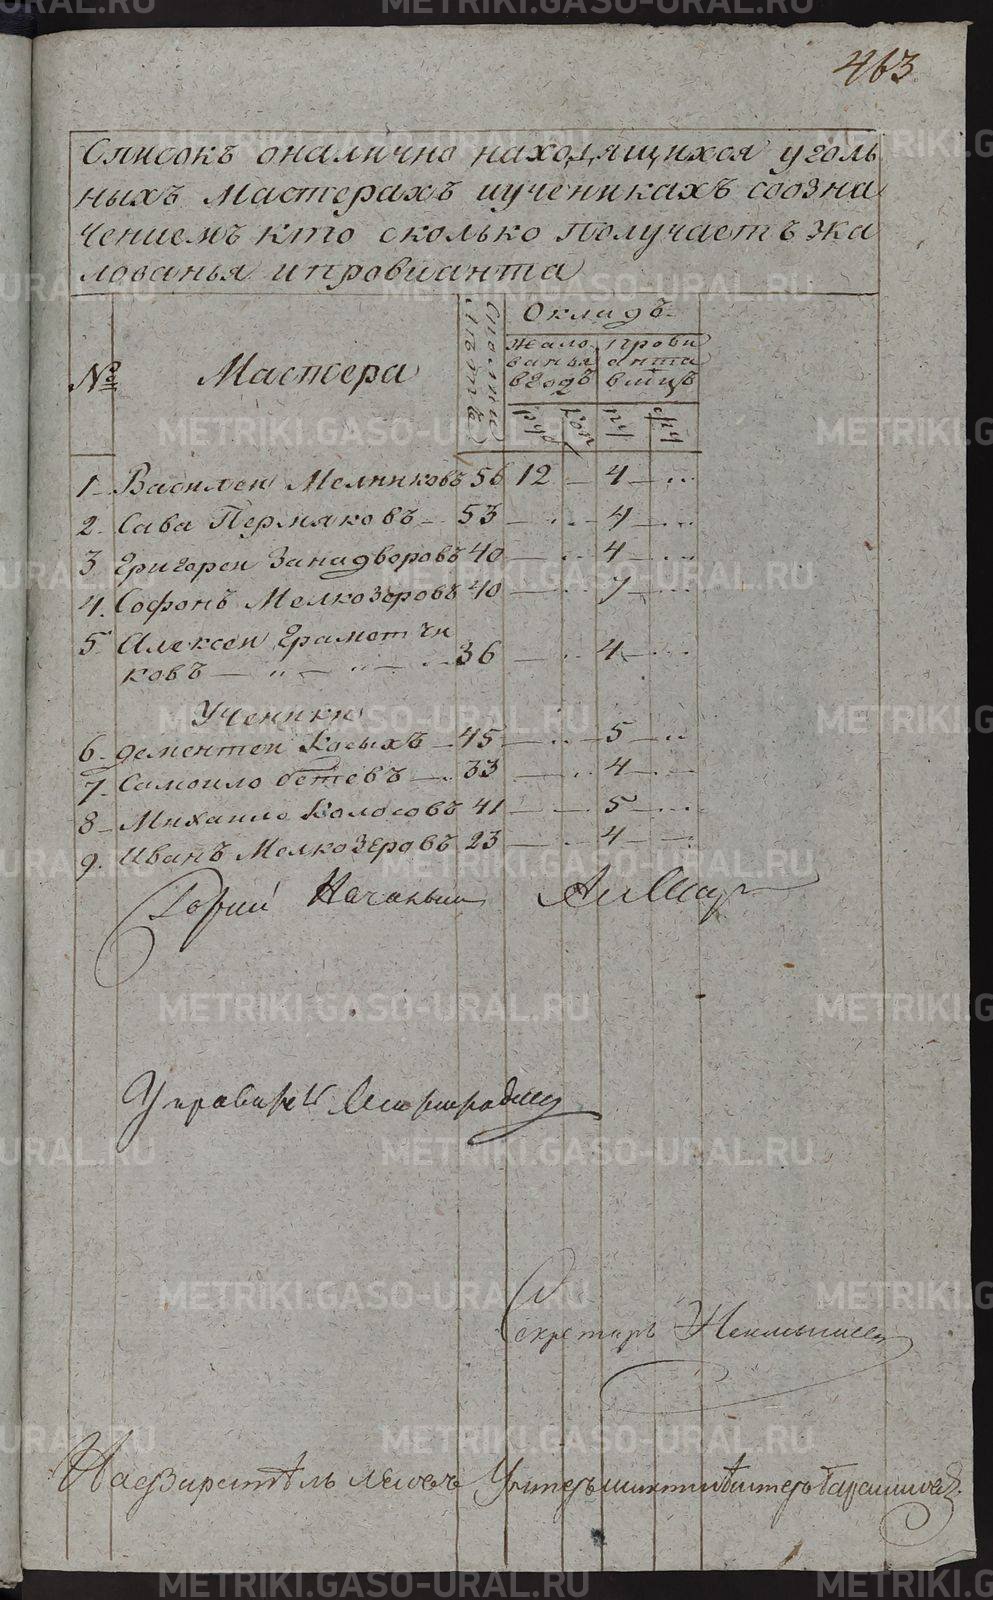 463
Списокъ оналично находящихся уголь
ныхъ мастерахъ иученикахъ собозна
чениемъ кто сколько получаетъ жа
лованья ипровианта
№
Мастера
Окладъ
жало
ванья
вгодъ
прови
анта
вмцъ
руб
коп
пу
фу
1 Василеи Мелниковъ 56 12 — 4 — ..
2. Сава Пермяковъ — 53 — .. 4 — ..
3 Григореи Занадворовъ 40 — .. 4 — ..
4. Софонъ Мелкозеровъ 40 — .. 7 — ..
5 Алексеи Грамотчи
ковъ — „ — „ — .. 36 — .. 4 — ..
Ученики
6. дементеи Косыхъ — 45 — .. 5 — ..
7. Самоило бетевъ — 33 — .. 4 — ..
8 Михаило Колосовъ 41 — .. 5 — ..
9. Иванъ Мелкозеровъ 23 — .. 4 — ..
Горнии Началник
Секретарь
Надзиратель лесовъ
METRIKI.GASO-URAL.RU